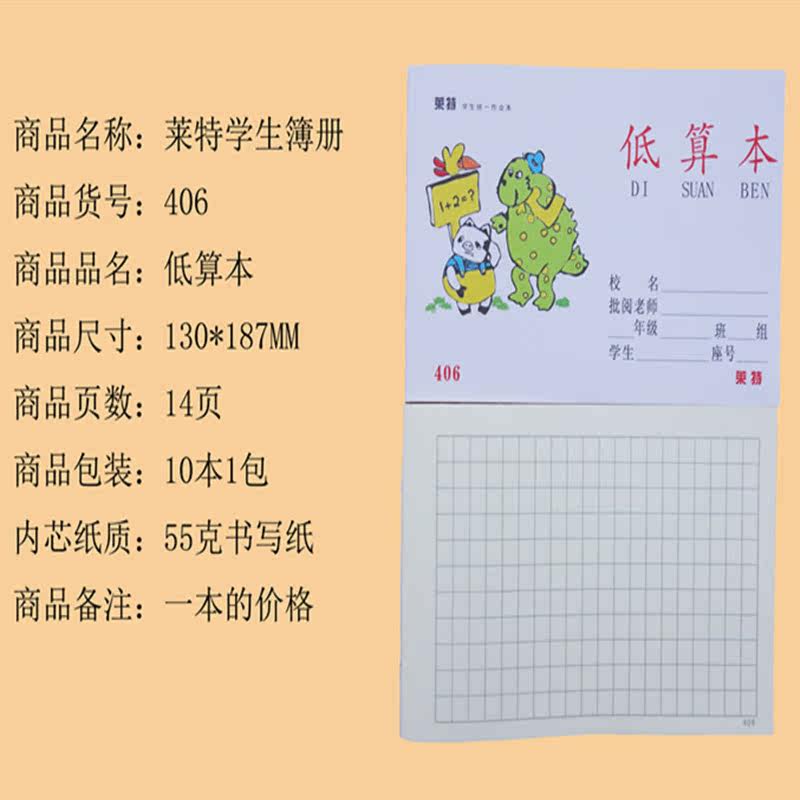 商品名称：莱特学生簿册
商品货号：406
商品品名：低算本
商品尺寸：130*187MM
商品页数：14页
商品包装：10本1包
内芯纸质：55克书写纸
商品备注：一本的价格
莱特 学生统一作业本
低算本
DI SUAN BEN
1+2=?
校 名
批阅老师
年级 班 组
学生 座号
406
莱特